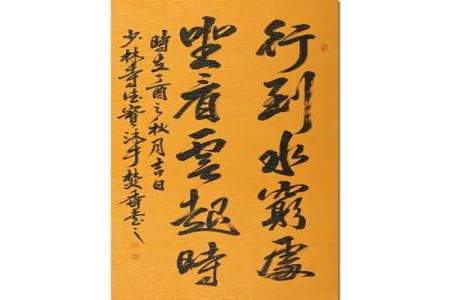 行到水窮處
坐看雲起時
時在丁酉之秋月吉日
少林寺德寶沐手焚香書之